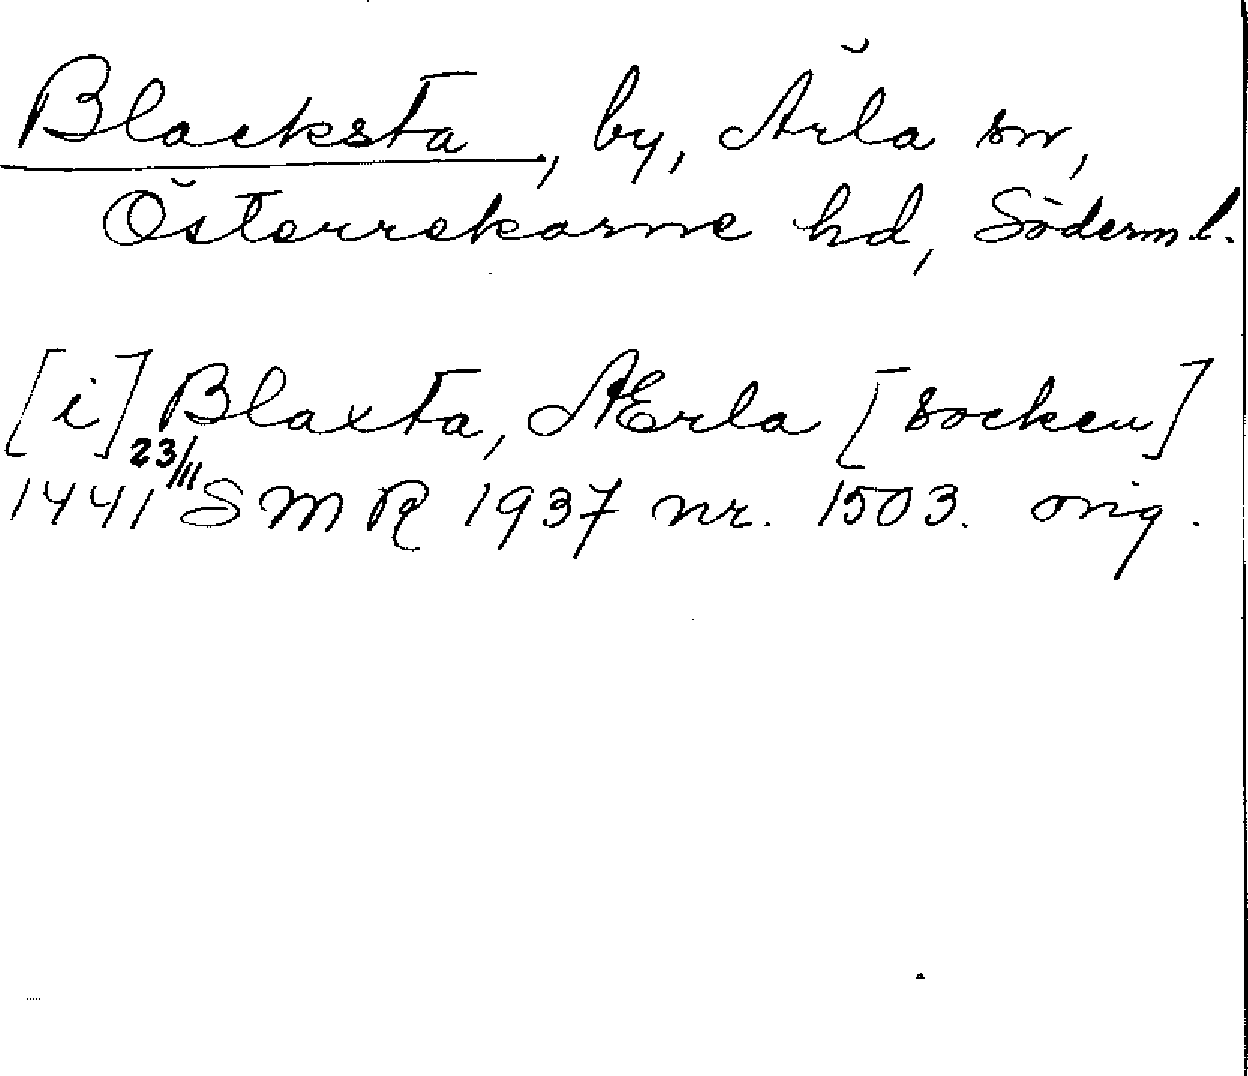 Blacksta, by, Ärla sn,
Österrekarne hd, Söderm.l.
[i] Blaxta, Ærla [socken]
1441 23/11 S M R 1937 nr. 1503. orig.